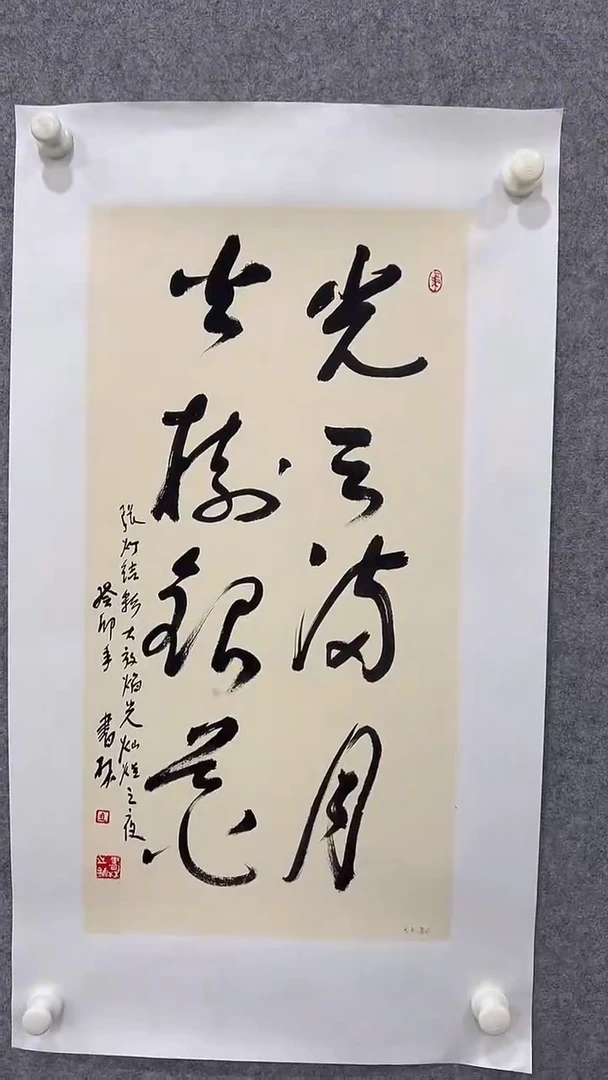 光云满月
火树银花
张灯结彩大放焰光灿烂之夜
癸卯年 書林